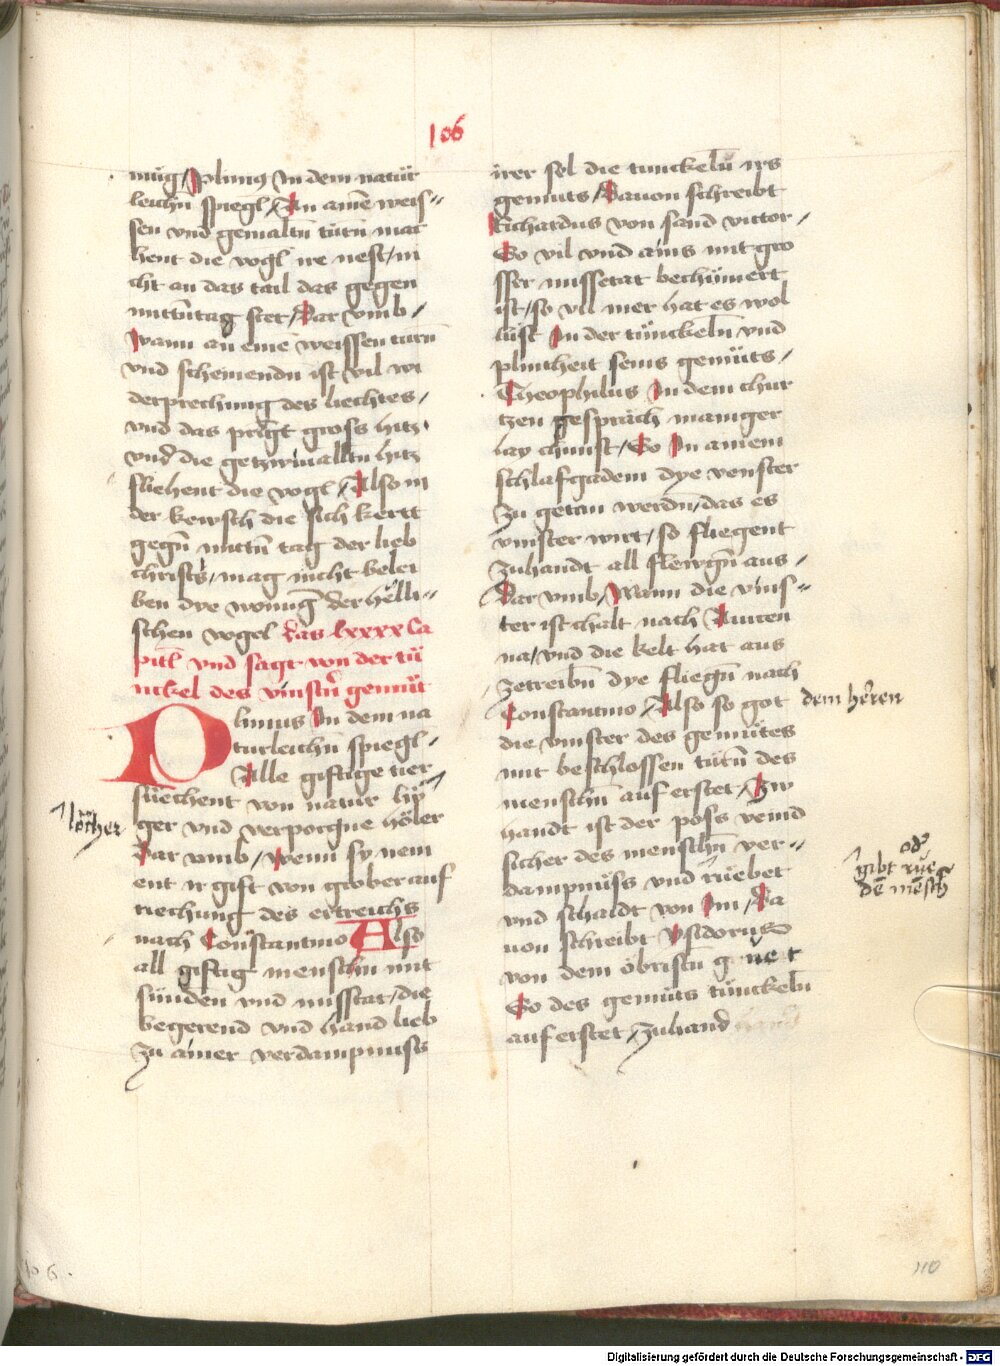 106
mug / Plinius In dem natur
leichn̄ spiegl / An ainē weis=
sen vnd gemaltn̄ turn̄ mac
hent die vogl ire nest / ni
cht an das tail das gegen
mittn̄tag stet / Dar vmb /
Wann an eine weissen turn̄
vnd scheinendn ist vil wi
derprechung des liechtes /
vnd das pringt gross hitz
vnd die getzwinaltn hitz
fliehent die vogl / Also in
der kewsch die sich kertt
gegn̄ mittn̄ tag der lieb
christi / mag nicht belei
ben dye wonūg der helli=
schen vogel Das lxxxx Ca
pitl vnd sagt von der tu
nckel des vinstn̄ gemut
Plinius In dem na
turleichn̄ spiegl /
Alle giftige tier
suechent von natur hy
ger vnd verporgne höler
löcher
Dar vmb / Wenn sy nem
ent ir gift von grober auf
riechung des ertreichs
nach Constantino Also
all giftig menschn mit
sunden vnd missetat / die
begerend vnd hand lieb
zu ainer verdampnuss
irer sel die tunckeln̄ irs
gemuts / Dauon schreibt
Richardus von sand victor /
So vil vnd ains mit gro
sser missetat bechumert
ist / so vil mer hat es wol
lust In der tunckeln̄ vnd
plintheit seins gemuts /
Theophilus In dem chur
tzen gespräch maniger
lay chunst / So In ainem
schlafgadem dye venster
zu getan werdn̄ / das es
vinster wirt / so fliegent
zuhandt all flewgn̄ aus /
Dar vmb / Wann die vins=
ter ist chalt nach Auicen
na / vnd die kelt hat aus
zetreibn̄ dye fliegn̄ nach
Constantino / Also so got
dem herren
die vinster des gemütes
mit beschlossen tutn̄ des
menschn̄ auf erstet / Zw
handt ist der poss veind
sicher des menschn̄ ver=
dampnuss vnd ruebet
od̄
gibt rue
dē mēsch
vnd schaidt von Im / Da
uon schreibt Ysidorus
von dem obristn̄ guet
So des gemuts tunckeln̄
auf erstet / zuhand
106.
110
Digitalisierung gefördert durch die Deutsche Forschungsgemeinschaft - DFG